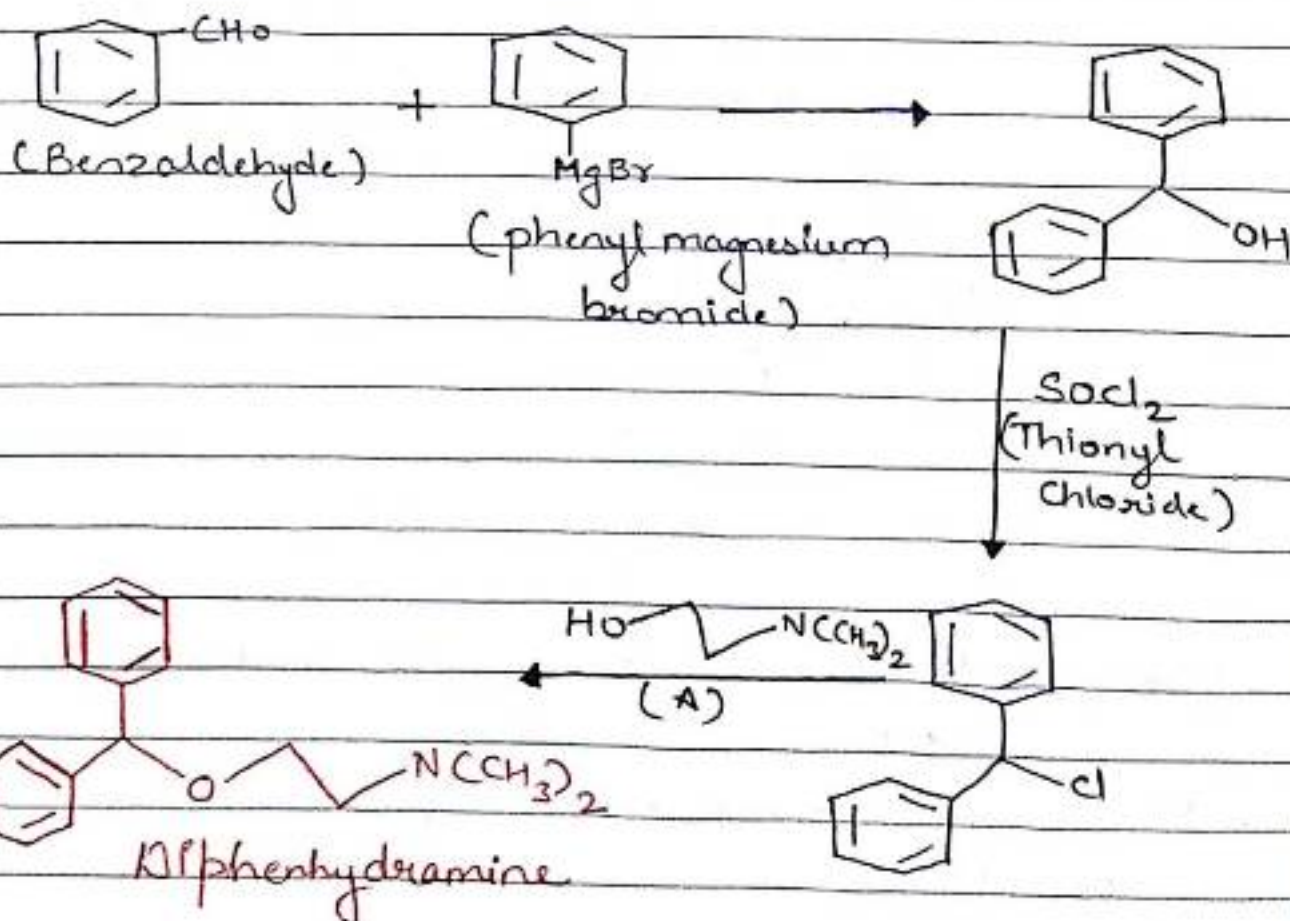 CHO
+
(Benzaldehyde)
MgBr
(phenyl magnesium
bromide)
OH
SOCl2
(Thionyl
Chloride)
HO
N(CH3)2
(A)
Cl
O
N(CH3)2
Diphenhydramine